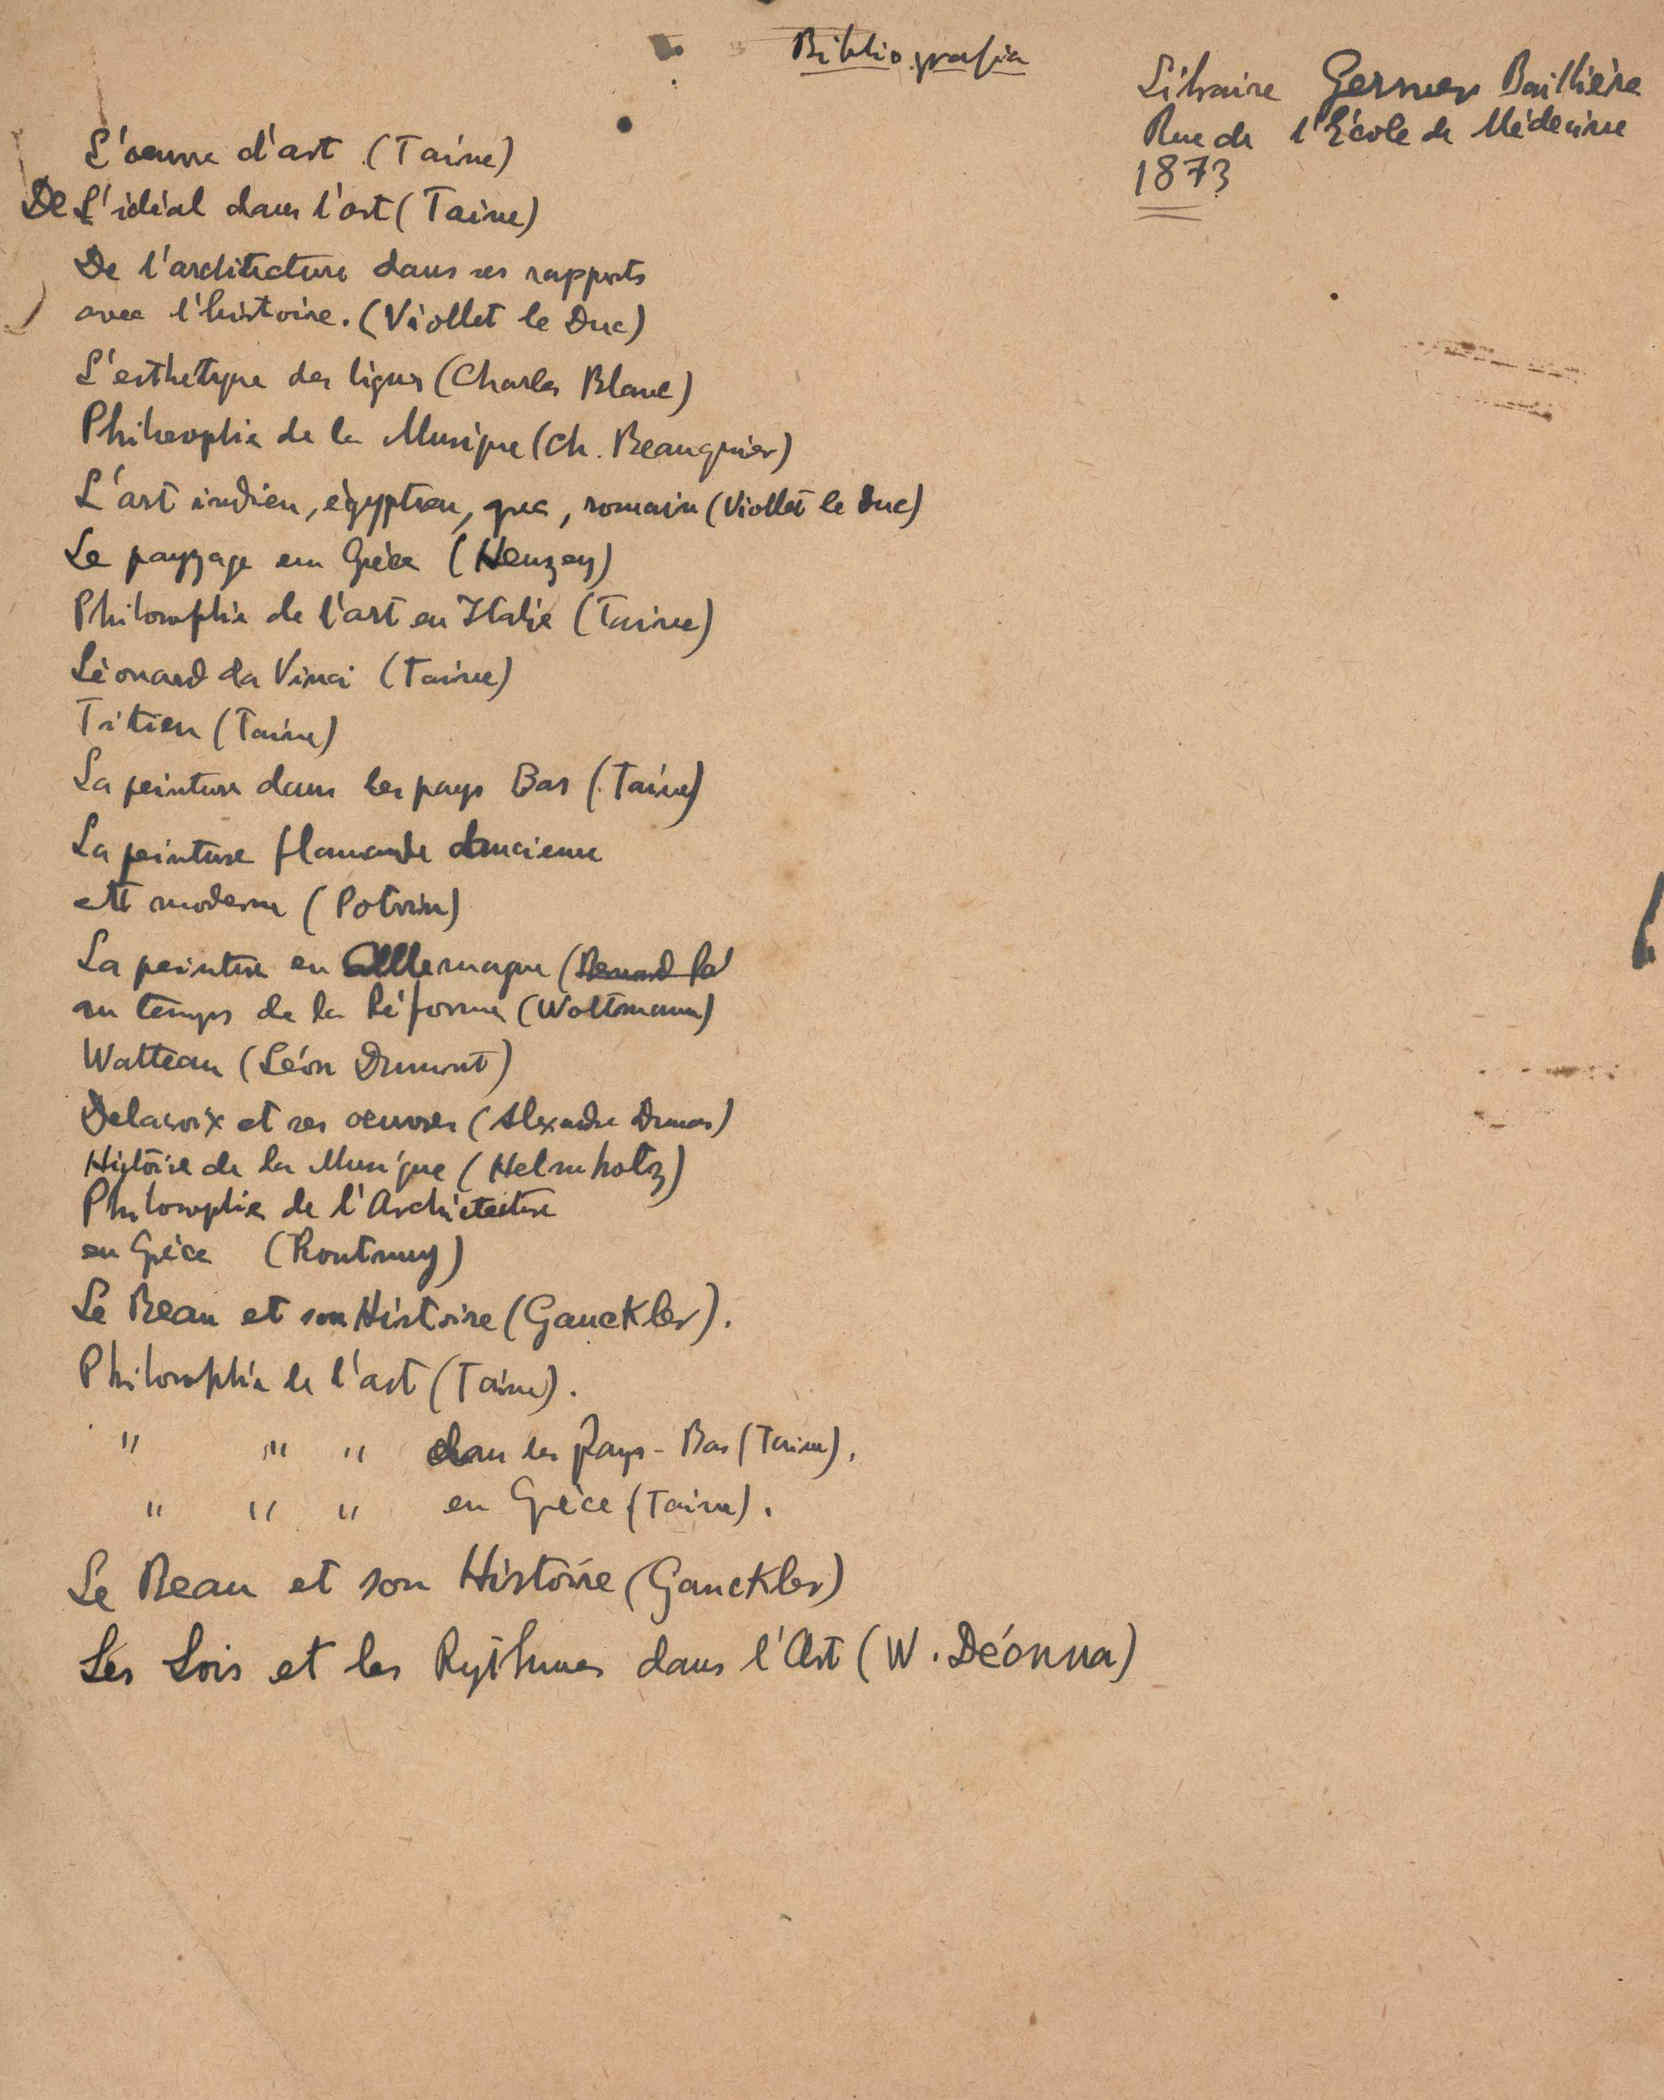 Bibliografia
Libraire Germer Baillière
Rue de l'École de Médecine
1873
L'oeuvre d'art (Taine)
De L'idéal dans l'art (Taine)
De l'architecture dans ses rapports
avec l'histoire. (Viollet le Duc)
L'esthetype des lignes (Charles Blanc)
Philosophie de la Musique (Ch. Beauquier)
L'art indien, égyptien, grec, romain (Viollet le Duc)
Le payzage en Grèce (Heuzey)
Philosophie de l'art en Italie (Taine)
Léonard da Vinci (Taine)
Titien (Taine)
La peinture dans les pays Bas (Taine)
La peinture flamande ancienne
et moderne (Potvin)
La peinture en Allemagne (
au temps de la Réforme (Woltmann)
Watteau (Léon Dumont)
Delacroix et ses oeuvres (Alexandre Dumas)
Histoire de la Musique (Helmholtz)
Philosophie de l'Architecture
en Grèce (Boutmy)
Le Beau et son Histoire (Gauckler).
Philosophie de l'art (Taine).
" " " dans les Pays-Bas (Taine).
" " " en Grèce (Taine).
Le Beau et son Histoire (Gauckler)
Les Lois et les Rythmes dans l'Art (W. Déonna)